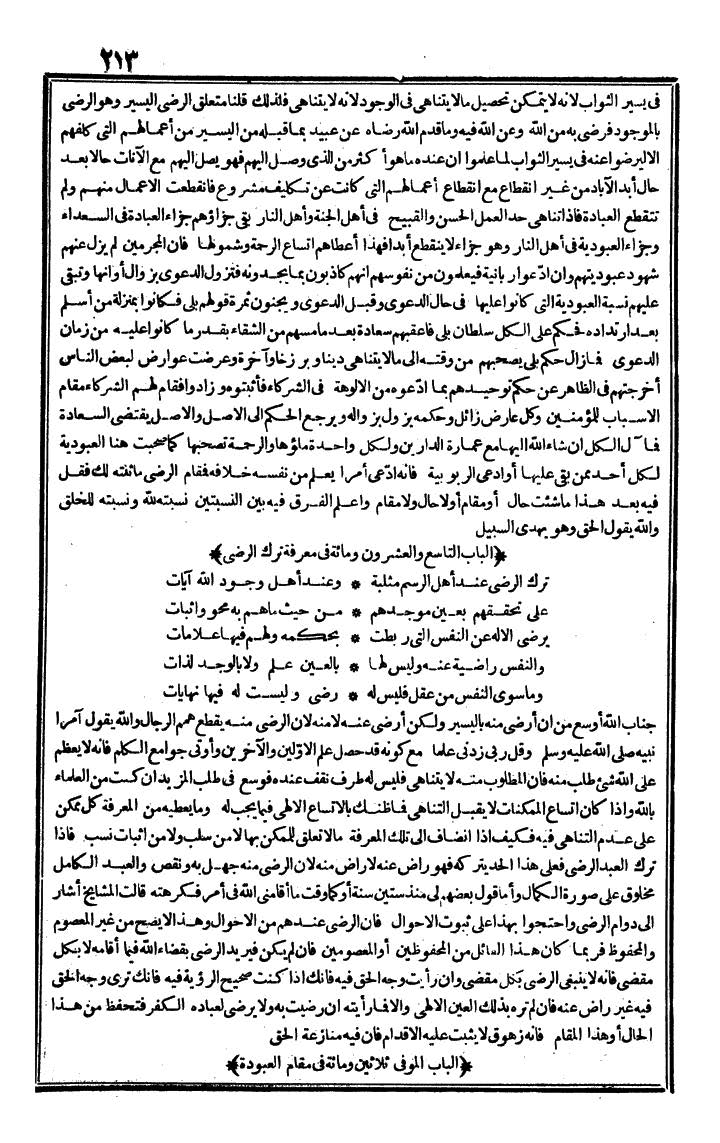 ٢١٣
فى يسير الثواب لانه لا يتمكن تحصيل ما لا يتناهى فى الوجود لانه لا يتناهى فلذلك قلنا متعلق الرضى اليسير وهو الرضى
بالموجود فرضى به من الله وعن الله فيه وما قدم الله رضاه عن عبيده بما قبله من اليسير من أعمالهم التى كلفهم
الا ليرضوا عنه فى يسير الثواب لما علموا ان عنده ما هو أكثر من الذى وصل اليهم فهو يصل اليهم مع الآنات حالا بعد
حال أبد الآباد من غير انقطاع مع انقطاع أعمالهم التى كانت عن تكليف مشروع فانقطعت الاعمال منهم ولم
تنقطع العبادة فاذا تناهى حد العمل الحسن والقبيح فى أهل الجنة وأهل النار بقى جزاؤهم جزاء العبادة فى السعداء
وجزاء العبودية فى أهل النار وهو جزاء لا ينقطع أبدا فهذا أعطاهم اتساع الرحمة وشمولها فان المجرمين لم يزل عنهم
شهود عبوديتهم وان ادّعوا ربانية فيعلمون من نفوسهم انهم كاذبون بما يجدونه فتزول الدعوى بزوال أوانها وتبقى
عليهم نسبة العبودية التى كانوا عليها فى حال الدعوى وقبل الدعوى ويجنون ثمرة قولهم بلى فكانوا بمنزلة من أسلم
بعد ارتداده فحكم على الكل سلطان بلى فاعقبهم سعادة بعد ما مسهم من الشقاء بقدر ما كانوا عليه من زمان
الدعوى فما زال حكم بلى يصحبهم من وقته الى ما لا يتناهى دينا وبرزخا وآخرة وعرضت عوارض لبعض الناس
أخرجتهم فى الظاهر عن حكم توحيدهم بما ادّعوه من الالوهة فى الشركاء فأثبتوه وزادوا فقام لهم الشركاء مقام
الاسباب للمؤمنين وكل عارض زائل وحكمه يزول بزواله ويرجع الحكم الى الاصل والاصل يقتضى السعادة
فمآل الكل ان شاء الله اليها مع عمارة الدارين ولكل واحدة ملؤها والرحمة تصحبها كما صحبت هنا العبودية
لكل أحد ممن بقى عليها أو ادعى الربوبية فانه ادّعى أمرا يعلم من نفسه خلافه فمقام الرضى ما ثبته لك فقل
فيه بعد هذا ما شئت حال أو مقام أو لا حال ولا مقام واعلم الفرق فيه بين النسبتين نسبته لله ونسبته للخلق
والله يقول الحق وهو يهدى السبيل
﴿الباب التاسع والعشرون ومائة فى معرفة ترك الرضى﴾
ترك الرضى عند أهل الرسم مثلبة * وعند أهل وجود الله آيات
على تحققهم بعين موجدهم * من حيث ماهم به محو واثبات
يرضى الاله عن النفس التى ربطت * بحكمه ولهم فيها علامات
والنفس راضية عنه وليس لها * بالعين علم ولا بالوجد لذات
وما سوى النفس من عقل فليس له * رضى وليست له فيها نهايات
جناب الله أوسع من ان أرضى منه باليسير ولكن أرضى عنه لا منه لان الرضى منه يقطع همم الرجال والله يقول آمرا
نبيه صلى الله عليه وسلم وقل رب زدنى علما مع كونه قد حصل علم الاوّلين والآخرين وأوتى جوامع الكلم فانه لا يعظم
على الله شئ طلب منه فان المطلوب منه لا يتناهى فليس له طرف نقف عنده فوسع فى طلب المزيد ان كنت من العلماء
بالله واذا كان اتساع الممكنات لا يقبل التناهى فما ظنك بالاتساع الالهى فيما يجب له وما يعطيه من المعرفة كل ممكن
على عدم التناهى فيه فكيف اذا انضاف الى تلك المعرفة ما لا تعلق للممكن بها لا من سلب ولا من اثبات نسب فاذا
ترك العبد الرضى فعلى هذا الحد يتركه فهو راض عنه لا راض منه لان الرضى منه جهل به ونقص والعبد الكامل
مخلوق على صورة الكمال وأما قول بعضهم لى منذ ستين سنة أو كما وقت ما أقامنى الله فى أمر فكرهته قالت المشايخ أشار
الى دوام الرضى واحتجوا بهذا على ثبوت الاحوال فان الرضى عندهم من الاحوال وهذا لا يصح من غير المعصوم
والمحفوظ فربما كان هذا القائل من المحفوظين أو المعصومين فان لم يكن فيريد الرضى بقضاء الله فيما أقامه لا بكل
مقضى فانه لا ينبغى الرضى بكل مقضى وان رأيت وجه الحق فيه فانك اذا كنت صحيح الرؤية فيه فانك ترى وجه الحق
فيه غير راض عنه فان لم تره بذلك العين الالهى والا فما رأيته ان رضيت به ولا يرضى لعباده الكفر فتحفظ من هذا
الحال أو هذا المقام فانه زهوق لا يثبت عليه الاقدام فان فيه منازعة الحق
﴿الباب الموفى ثلاثين ومائة فى مقام العبودة﴾